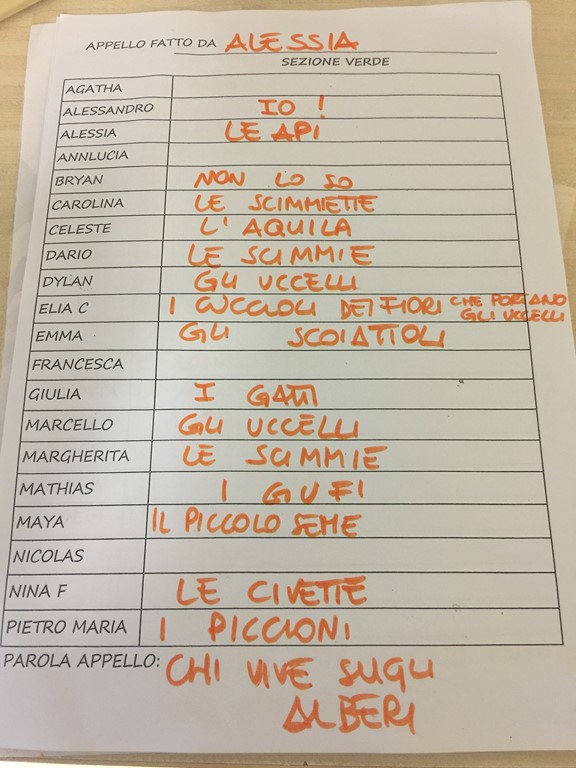 APPELLO FATTO DA ALESSIA
SEZIONE VERDE
AGATHA
ALESSANDRO IO !
ALESSIA LE API
ANNLUCIA
BRYAN NON LO SO
CAROLINA LE SCIMMIETTE
CELESTE L'AQUILA
DARIO LE SCIMMIE
DYLAN GLI UCCELLI
ELIA C I CUCCIOLI DEI FIORI CHE PORTANO
GLI UCCELLI
EMMA GLI SCOIATTOLI
FRANCESCA
GIULIA I GATTI
MARCELLO GLI UCCELLI
MARGHERITA LE SCIMMIE
MATHIAS I GUFI
MAYA IL PICCOLO SEME
NICOLAS
NINA F LE CIVETTE
PIETRO MARIA I PICCIONI
PAROLA APPELLO: CHI VIVE SUGLI
ALBERI